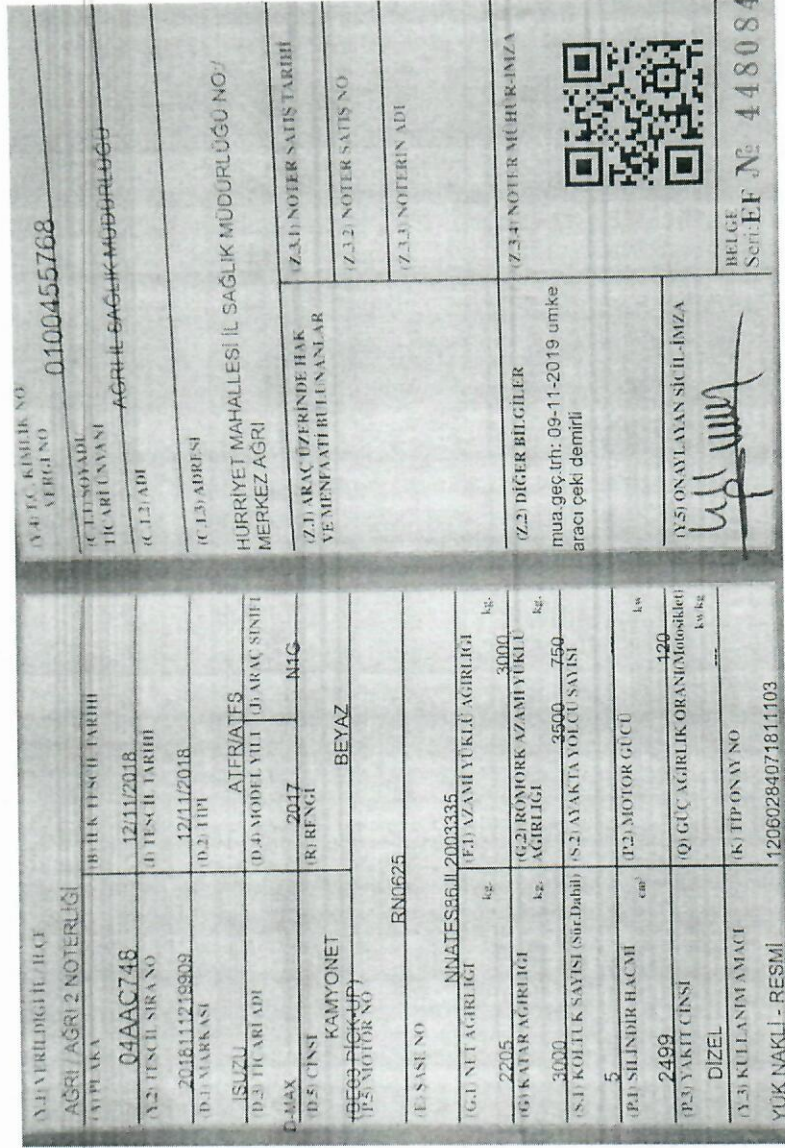 (Y.1) VERİLDİĞİ İL / İLÇE
AĞRI / AĞRI 2 NOTERLİĞİ
(A) PLAKA
04AAC748
(B) İLK TESCİL TARİHİ
12/11/2018
(Y.2) TESCİL SIRA NO
2018111219909
(I) TESCİL TARİHİ
12/11/2018
(D.1) MARKASI
ISUZU
(D.2) TİPİ
ATFR/ATFS
(D.3) TİCARİ ADI
D-MAX
(D.4) MODEL YILI
2017
(J) ARAÇ SINIFI
N1G
(D.5) CİNSİ
KAMYONET
(BE03 PİCK-UP)
(R) RENGİ
BEYAZ
(P.5) MOTOR NO
RN0625
(E) ŞASİ NO
(G.1) NET AĞIRLIĞI
2205
kg.
(F.1) AZAMİ YÜKLÜ AĞIRLIĞI
3000
kg.
(G) KATAR AĞIRLIĞI
3000
kg.
(G.2) RÖMORK AZAMİ YÜKLÜ
AĞIRLIĞI
3500 750
kg.
(S.1) KOLTUK SAYISI (Sür.Dahil)
5
(S.2) AYAKTA YOLCU SAYISI
---
(P.1) SİLİNDİR HACMİ
2499
cm³
(P.2) MOTOR GÜCÜ
120
kw
(P.3) YAKIT CİNSİ
DİZEL
(Q) GÜÇ AĞIRLIK ORANI(Motosiklet)
---
kw/kg
(Y.3) KULLANIM AMACI
YÜK NAKLİ - RESMİ
(K) TİP ONAY NO
12060284071811103
(Y.4) T.C. KİMLİK NO
VERGİ NO
0100455768
(C.1.1) SOYADI
TİCARİ ÜNVANI
AĞRI İL SAĞLIK MÜDÜRLÜĞÜ
(C.1.2) ADI
(C.1.3) ADRESİ
HÜRRİYET MAHALLESİ İL SAĞLIK MÜDÜRLÜĞÜ NO:/
MERKEZ AĞRI
(Z.1) ARAÇ ÜZERİNDE HAK
VE MENFAATİ BULUNANLAR
(Z.3.1) NOTER SATIŞ TARİHİ
(Z.3.2) NOTER SATIŞ NO
(Z.3.3) NOTERİN ADI
(Z.2) DİĞER BİLGİLER
mua.geç.trh: 09-11-2019 umke
aracı çeki demirli
(Z.3.4) NOTER MÜHÜR-İMZA
(Y.5) ONAYLAYAN SİCİL-İMZA
BELGE
Seri:EF № 448084